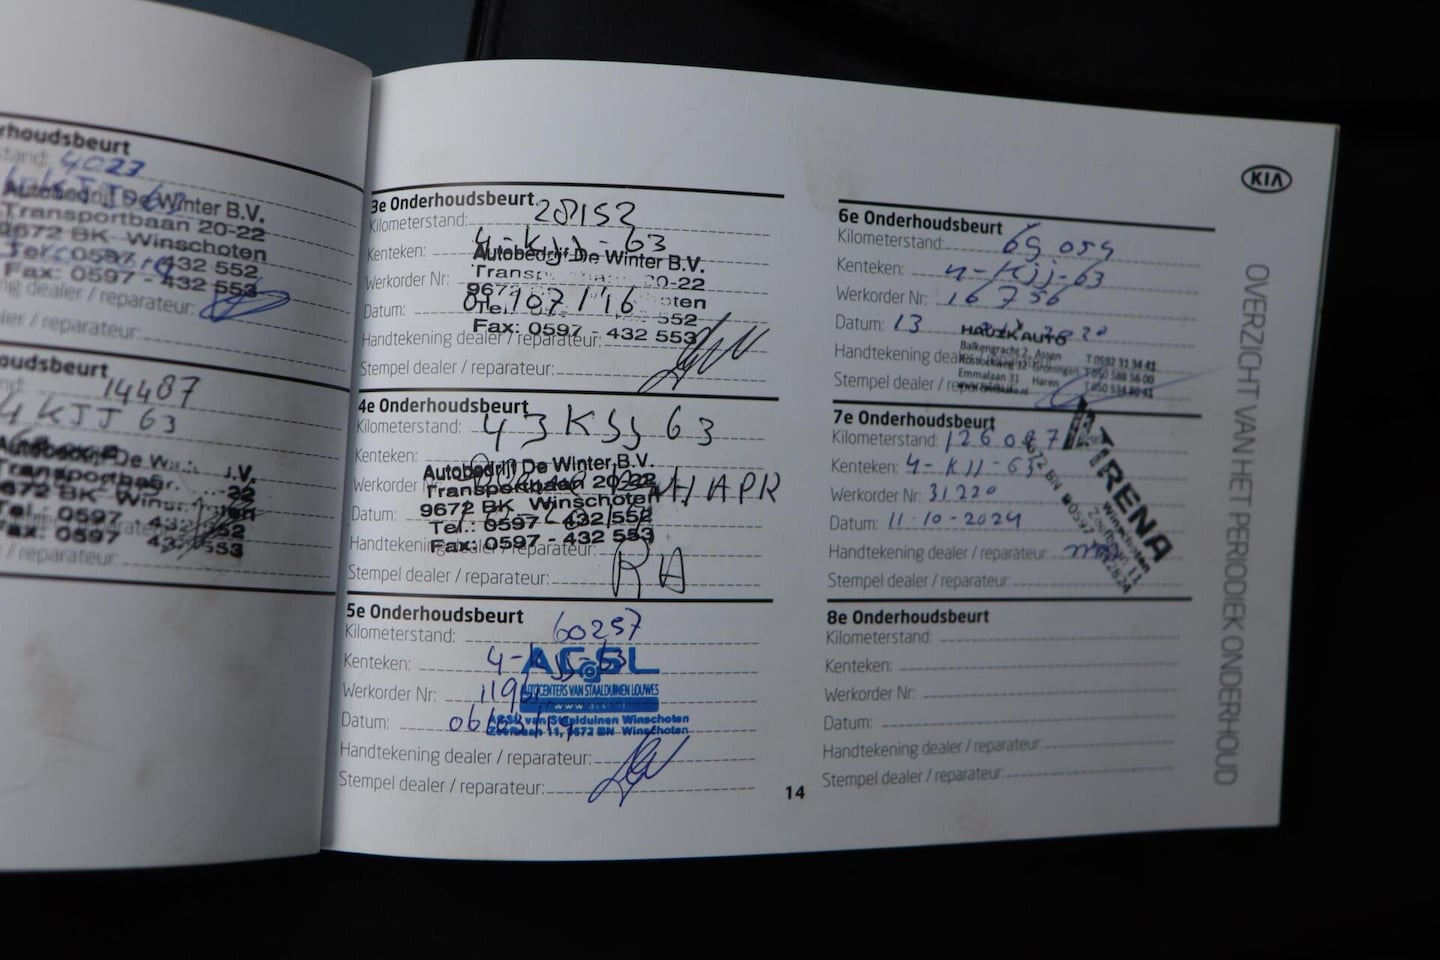 rhoudsbeurt
stand: 4023
Autobedrijf De Winter B.V.
Transportbaan 20-22
9672 BK Winschoten
Tel.: 0597 - 432 552
Fax: 0597 - 432 553
ng dealer / reparateur:
ler / reparateur:
oudsbeurt
nd: 14487
4 KJJ 63
Autobedrijf De
Transportbaan 22
9672 BK Winschoten
Tel.: 0597 432
Fax: 0597 - 432 553
/ reparateur:
3e Onderhoudsbeurt
Kilometerstand: 28152
Kenteken: 4-KJJ-63
Autobedrijf De Winter B.V.
Werkorder Nr: 20-22
9672 oten
Datum: 01/07/16
Tel. 552
Fax: 0597 - 432 553
Handtekening dealer / reparateur:
Stempel dealer / reparateur:
4e Onderhoudsbeurt
Kilometerstand: 43 KJJ 63
Kenteken:
Autobedrijf De Winter B.V.
Werkorder Nr
Transportbaan 20-22
9672 BK Winschoten
Datum:
Tel.: 0597 - 432 552
Fax: 0597 - 432 553
Handtekening dealer / reparateur:
Stempel dealer / reparateur:
5e Onderhoudsbeurt
Kilometerstand: 60257
Kenteken: 4-KJJ-63
ACSL
Werkorder Nr:
AUTOCENTERS VAN STAALDUINEN LOUWES
Datum: 06/03/19
ACSL van Staalduinen Winschoten
Zeefbaan 11, 9672 BN Winschoten
Handtekening dealer / reparateur:
Stempel dealer / reparateur:
14
KIA
6e Onderhoudsbeurt
Kilometerstand: 69 054
Kenteken: 4-KJJ-63
Werkorder Nr: 16756
Datum: 13 2020
HAUZK AUTO
Balkengracht 2, Assen T 0592 31 34 41
Handtekening dealer Groningen T 050 588 56 00
Emmalaan 31 Haren T 050 534 80 41
Stempel dealer / reparateur
7e Onderhoudsbeurt
Kilometerstand: 126087
Kenteken: 4-KJJ-63
Werkorder Nr: 31220
Datum: 11-10-2024
Handtekening dealer / reparateur:
Stempel dealer / reparateur:
Winschoten
8e Onderhoudsbeurt
Kilometerstand:
Kenteken:
Werkorder Nr:
Datum:
Handtekening dealer / reparateur:
Stempel dealer / reparateur:
OVERZICHT VAN HET PERIODIEK ONDERHOUD